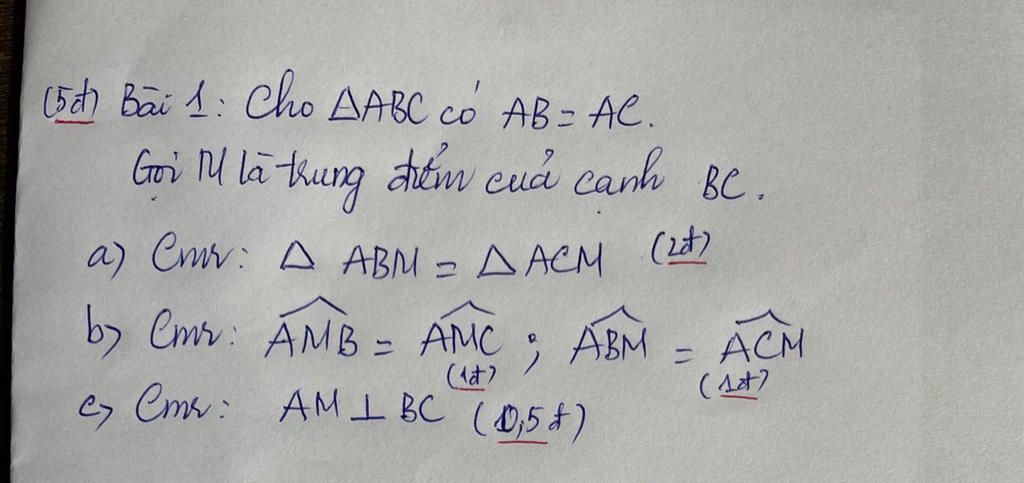 (5đ) Bài 1: Cho ΔABC có AB = AC.
Gọi M là trung điểm cuả cạnh BC.
a) Cmr: Δ ABM = Δ ACM (2đ)
b) Cmr: AMB = AMC ; ABM = ACM
(1đ) (1đ)
c) Cmr: AM ⊥ BC (0,5đ)